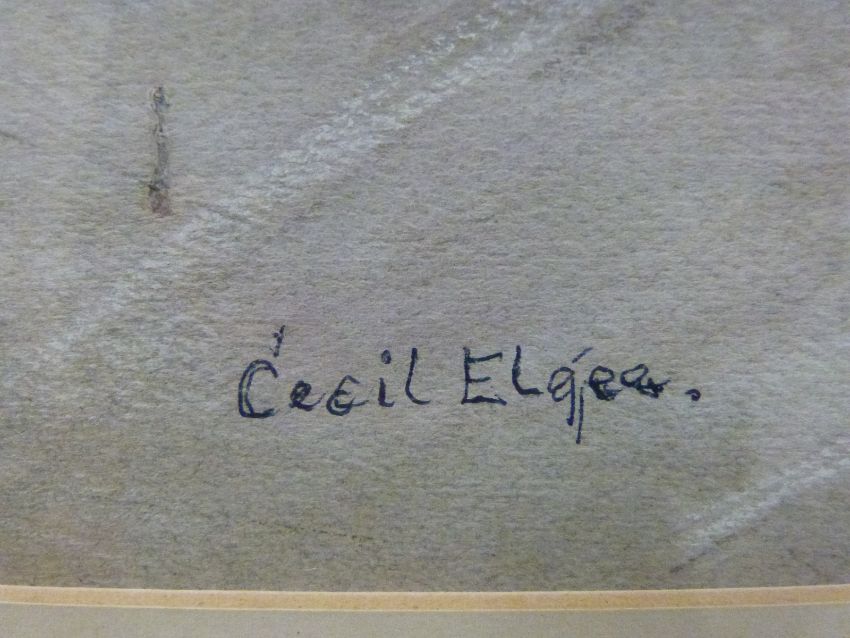 Cecil Elgee.